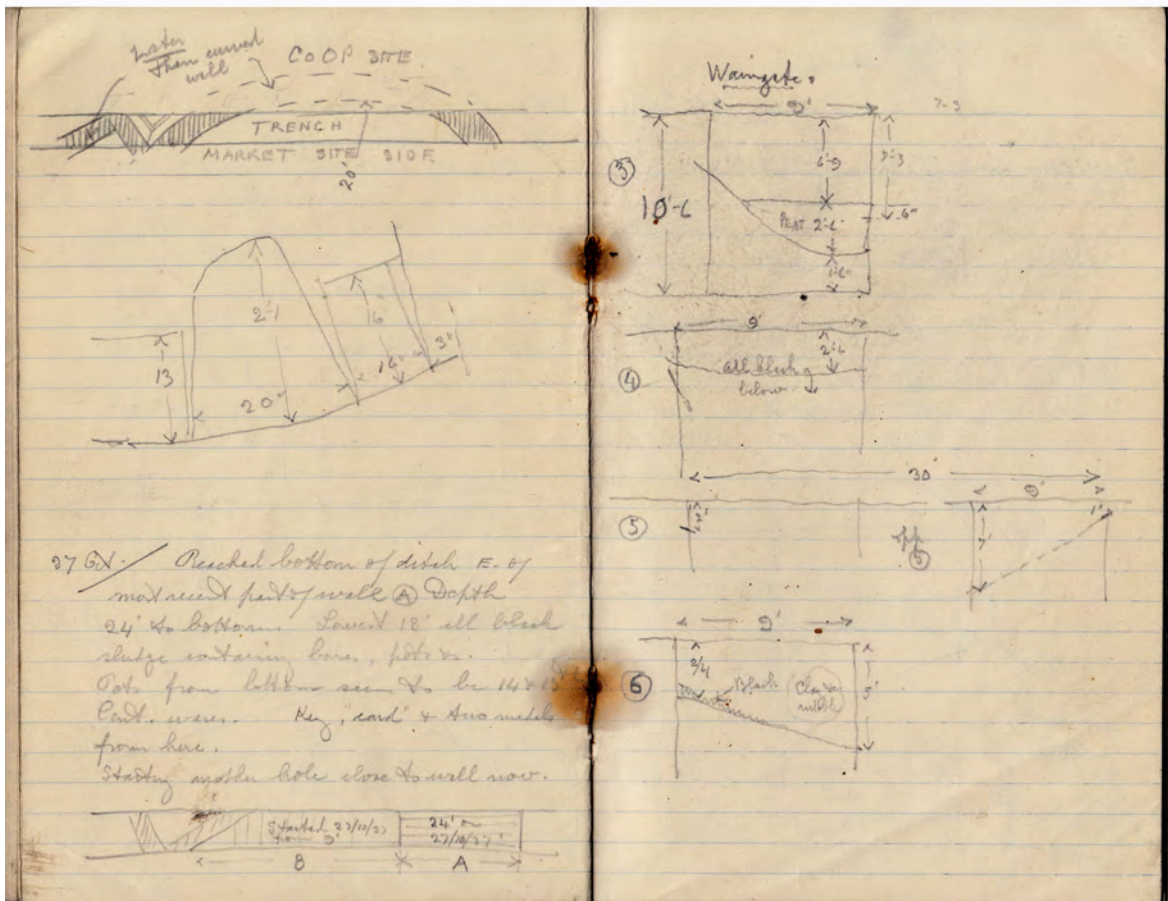 Later
than curved
wall
COOP SITE
TRENCH
MARKET SITE SIDE
20'
13
2'-1
20"
16
16"
3"
27 Oct. Reached bottom of ditch E. of
most recent part of wall A Depth
24' to bottom. Lowest 18' all black
sludge containing bones, pots
Pots from bottom seem to be 14 & 15
Cent. wares. Key, "card" & two
from here.
Starting another hole close to wall now.
Started 27/10/27
from 9'
24' on
27/10/27
B
A
Waingate.
9'
7-3
3
10'-6
6'-9
7'-3
6"
PEAT 2'-6"
1'-6"
9'
4
2'-6
all black
below
30'
5
2'
9'
7'
1'
9'
6
2/4
Black
5'